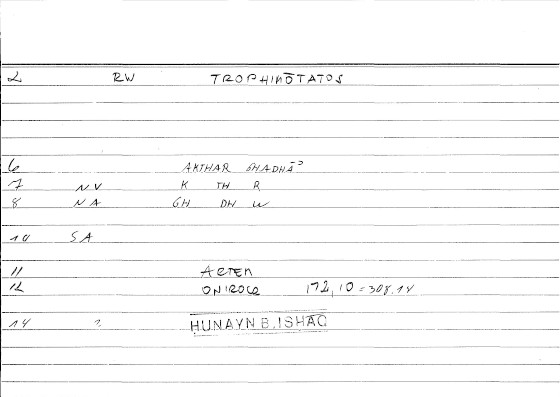 2 RW TROPHIMŌTATOS
6 AKTHAR GHADHĀʾ
7 NV K TH R
8 NA GH DH W
10 SA
11 ARTEM
12 ONIROCR 172,10 = 308.14
14 ? HUNAYN B. ISHAQ